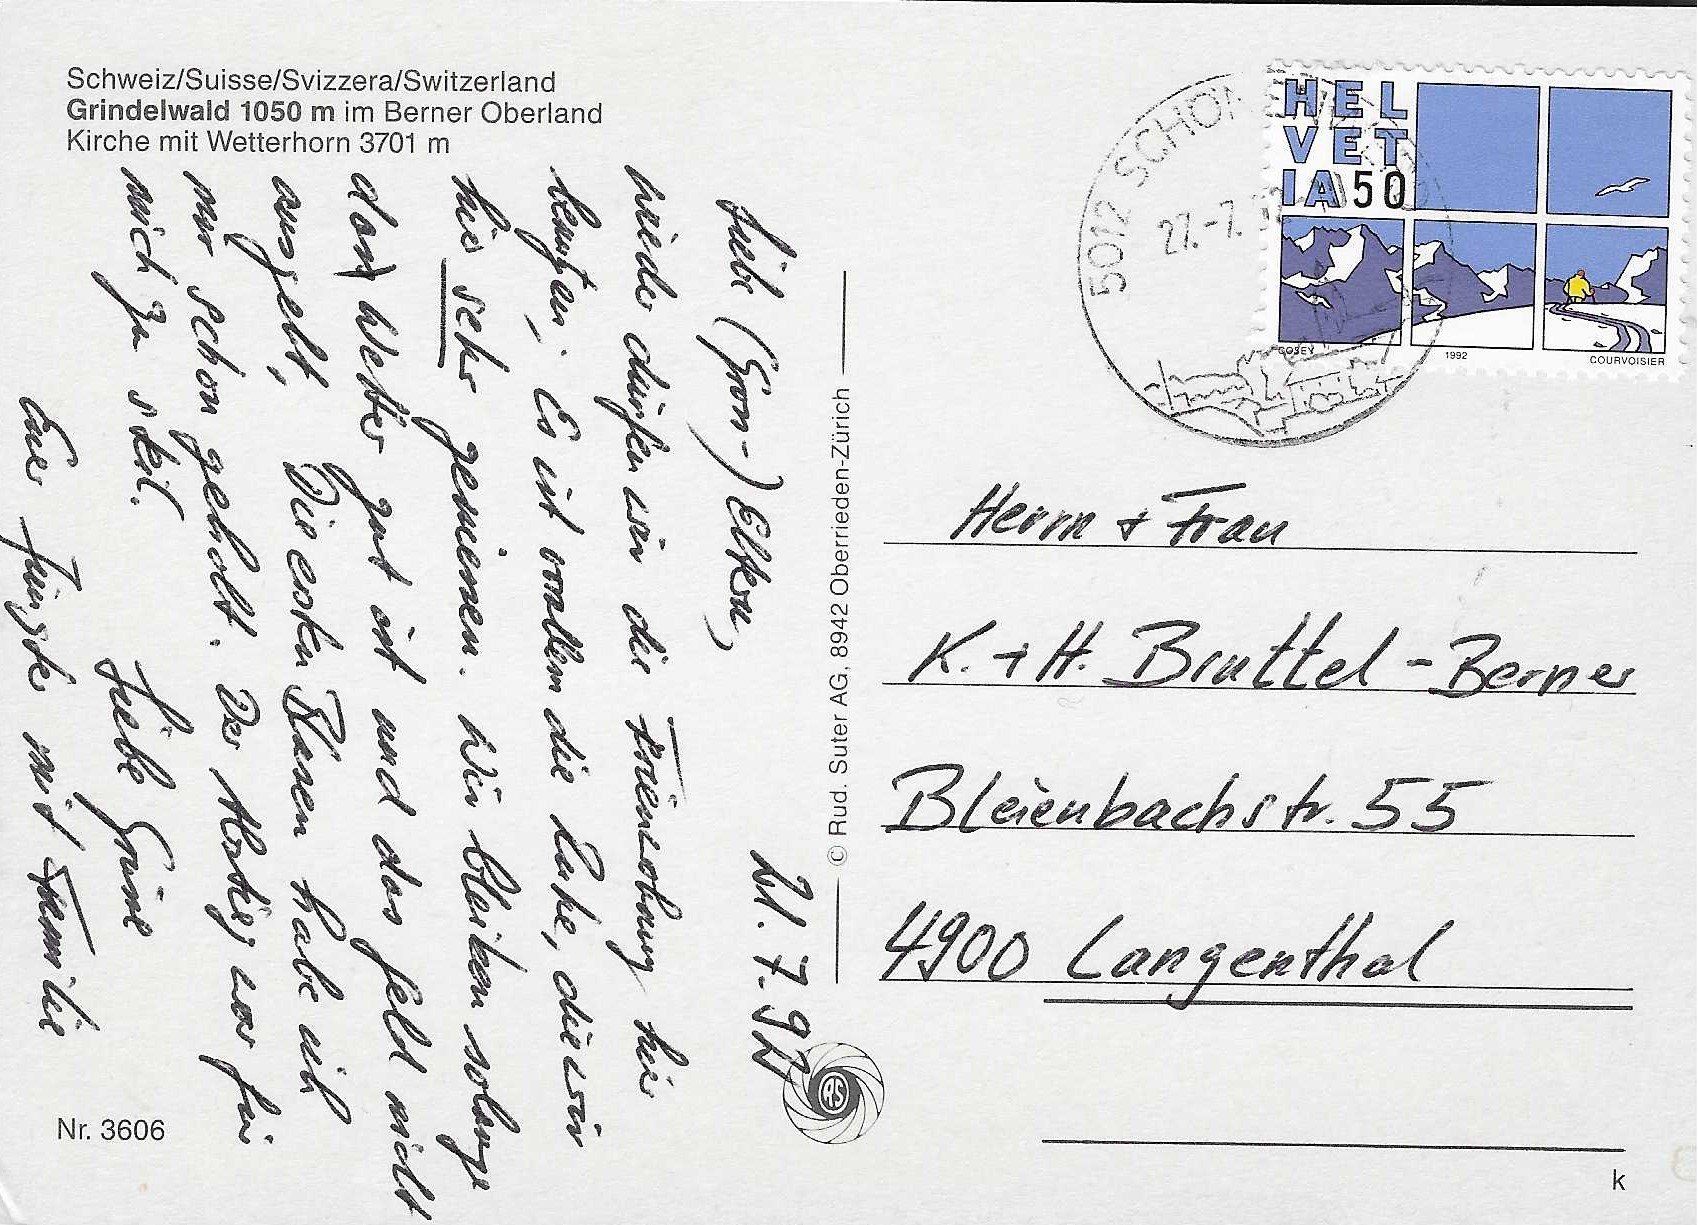 Schweiz/Suisse/Svizzera/Switzerland
Grindelwald 1050 m im Berner Oberland
Kirche mit Wetterhorn 3701 m
21.7.92
Liebe (Gross-) Eltern,
wieder dürfen wir die Ferienwohnung hier
benutzen. Es ist vor allem die Ruhe, die wir
hier sehr geniessen. Wir bleiben solange
das Wetter gut ist und das Geld nicht
ausgeht. Die ersten Blasen habe ich
mir schon geholt. Der Abstieg war für
mich zu steil.
Liebe Grüsse
Eure Jüngste mit Familie
Nr. 3606
© Rud. Suter AG. 8942 Oberrieden-Zürich
RS
5012 SCHÖN
27.-7.
HEL
VET
IA 50
COSEY
1992
COURVOISIER
Herrn + Frau
K. + H. Bruttel-Berner
Bleienbachstr. 55
4900 Langenthal
k